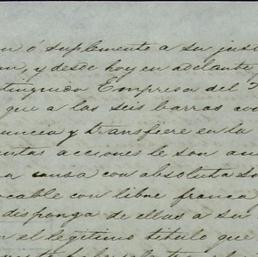 n ó suplemento a su just
on, y desde hoy en adelante
tinguido Empresa del
que a las seis barras co
uncia y transfiere en la
untas acciones le son an
a causa con absoluta So
ocable con libre franca
disponga de ellas a su
n el legítimo titulo que